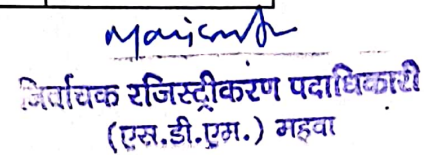 निर्वाचक रजिस्ट्रीकरण पदाधिकारी
(एस.डी.एम.) महवा